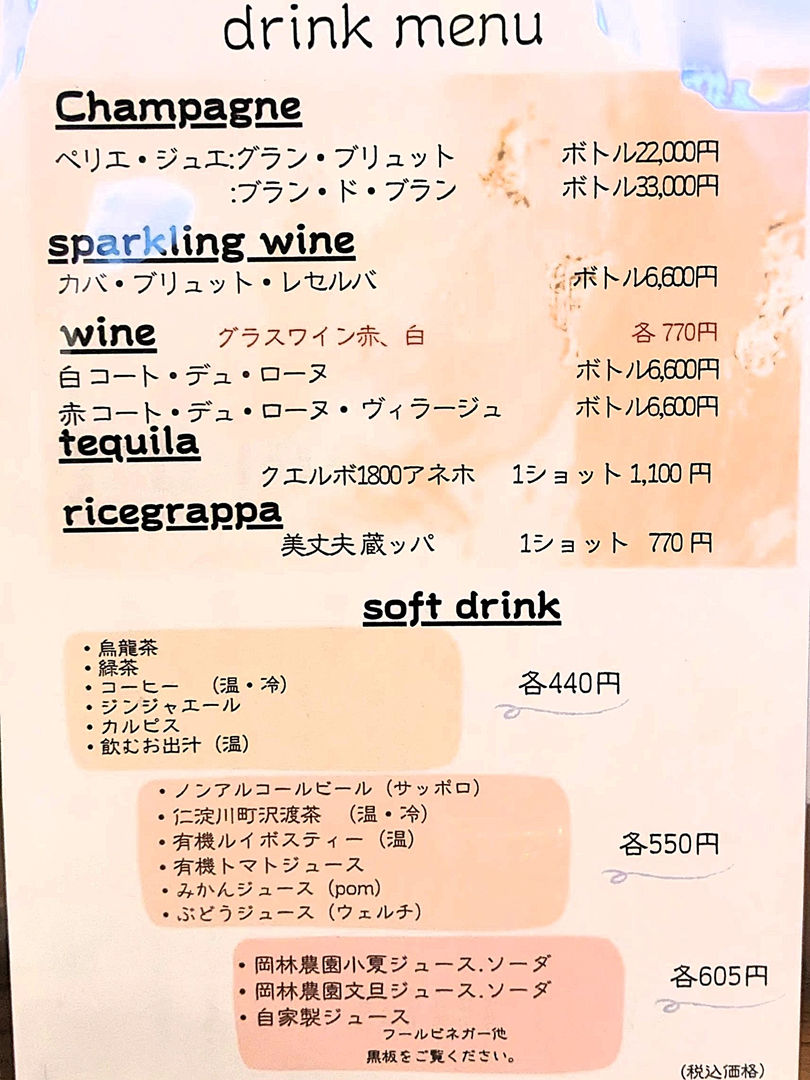 drink menu
Champagne
ペリエ・ジュエ:グラン・ブリュット ボトル22,000円
:ブラン・ド・ブラン ボトル33,000円
sparkling wine
カバ・ブリュット・レセルバ ボトル6,600円
wine グラスワイン赤、白 各 770円
白 コート・デュ・ローヌ ボトル6,600円
赤 コート・デュ・ローヌ・ヴィラージュ ボトル6,600円
tequila
クエルボ1800アネホ 1ショット 1,100 円
ricegrappa
美丈夫 蔵ッパ 1ショット 770 円
soft drink
・烏龍茶
・緑茶
・コーヒー (温・冷)
・ジンジャエール
・カルピス
・飲むお出汁 (温)
各440円
・ノンアルコールビール (サッポロ)
・仁淀川町沢渡茶 (温・冷)
・有機ルイボスティー (温)
・有機トマトジュース
・みかんジュース (pom)
・ぶどうジュース (ウェルチ)
各550円
・岡林農園小夏ジュース.ソーダ
・岡林農園文旦ジュース.ソーダ
・自家製ジュース
フールビネガー他
黒板をご覧ください。
各605円
(税込価格)